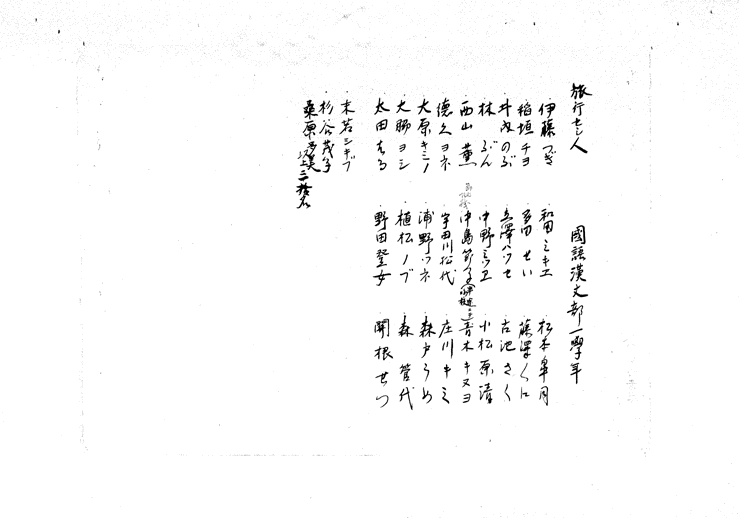 旅行セシ人　國語漢文部一學年
伊藤つぎ　和田ミキエ　松本皐月
稲垣チヨ　多田せい　藤澤くに
井内のぶ　立澤ハツセ　古池さく
林ぶん　中野ミツヱ　小松原清
西山薫　中島節子　青木キヌヨ
德久ヨネ　宇田川松代　庄川キミ
大原キミノ　浦野ツネ　森戸うめ
大脇ヨシ　植松ノブ　森菅代
太田はる　野田登女　関根せつ
末若シキブ
杉谷茂子
桑原多美
以上三拾名